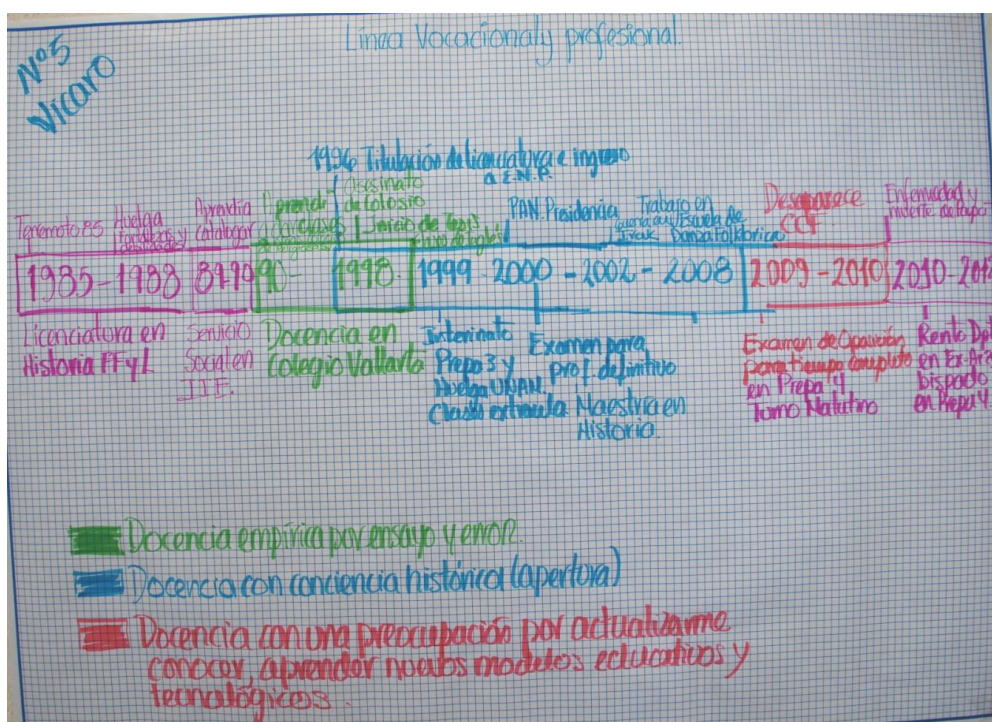 Nº5
Vicaro
Línea Vocacional y profesional.
1996 Titulación de licenciatura e ingreso
a E.N.P.
Terremoto 85
Huelga
y
Aprendía a
catalogar
Aprende
a dar clases
Asesinato
de Colosio
Inicio de Tesis
PAN. Presidencia
Irak
Trabajo en
Escuela de
Danza Folklorica
Desaparece
CCF
Enfermedad y
muerte de
1985-1988
89-90
90-
1998.
1999 - 2000 - 2002 - 2008
2009-2010
2010-2012
Licenciatura en
Historia FFyL
Servicio
Social en
I I F.
Docencia en
Colegio Vallarta
Interinato
Prepa 3 y
Huelga UNAM.
Clases extramula
Examen para
prof. definitivo
Maestría en
Historia
Examen de Oposición
para tiempo completo
en Prepa 4
Turno Matutino
Rento Dpt
en Ex-Arz
bispado
en Prepa 4.
Docencia empírica por ensayo y error.
Docencia con conciencia histórica (apertura)
Docencia con una preocupación por actualizarme
conocer, aprender nuevos modelos educativos y
tecnológicos.